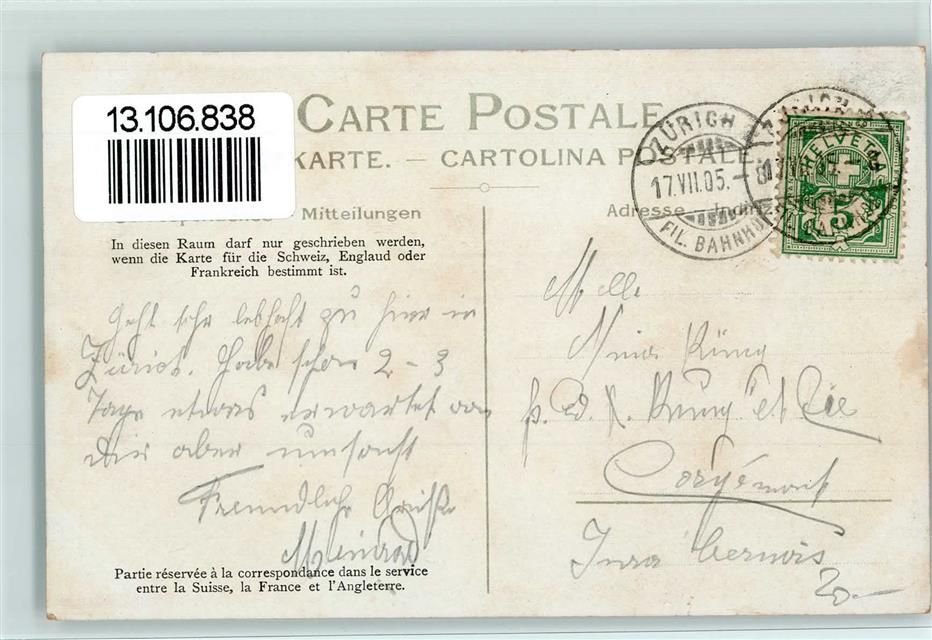 13.106.838
CARTE POSTALE
KARTE. — CARTOLINA POSTALE.
Mitteilungen
Adresse — Indirizzo
In diesen Raum darf nur geschrieben werden,
wenn die Karte für die Schweiz, Englaud oder
Frankreich bestimmt ist.
Geht sehr lebhaft zu hier in
Zürich. Habe schon 2-3
Tage etwas erwartet von
dir aber umsonst
Freundliche Grüsse
Meinrad
Partie réservée à la correspondance dans le service
entre la Suisse, la France et l'Angleterre.
ZÜRICH
17.VII.05.–8
FIL. BAHNHOF
HELVETIA
5
Mlle
Mina Küng
p. Ed. K. Küng et Cie
Corgémont
Jura bernois
20.—